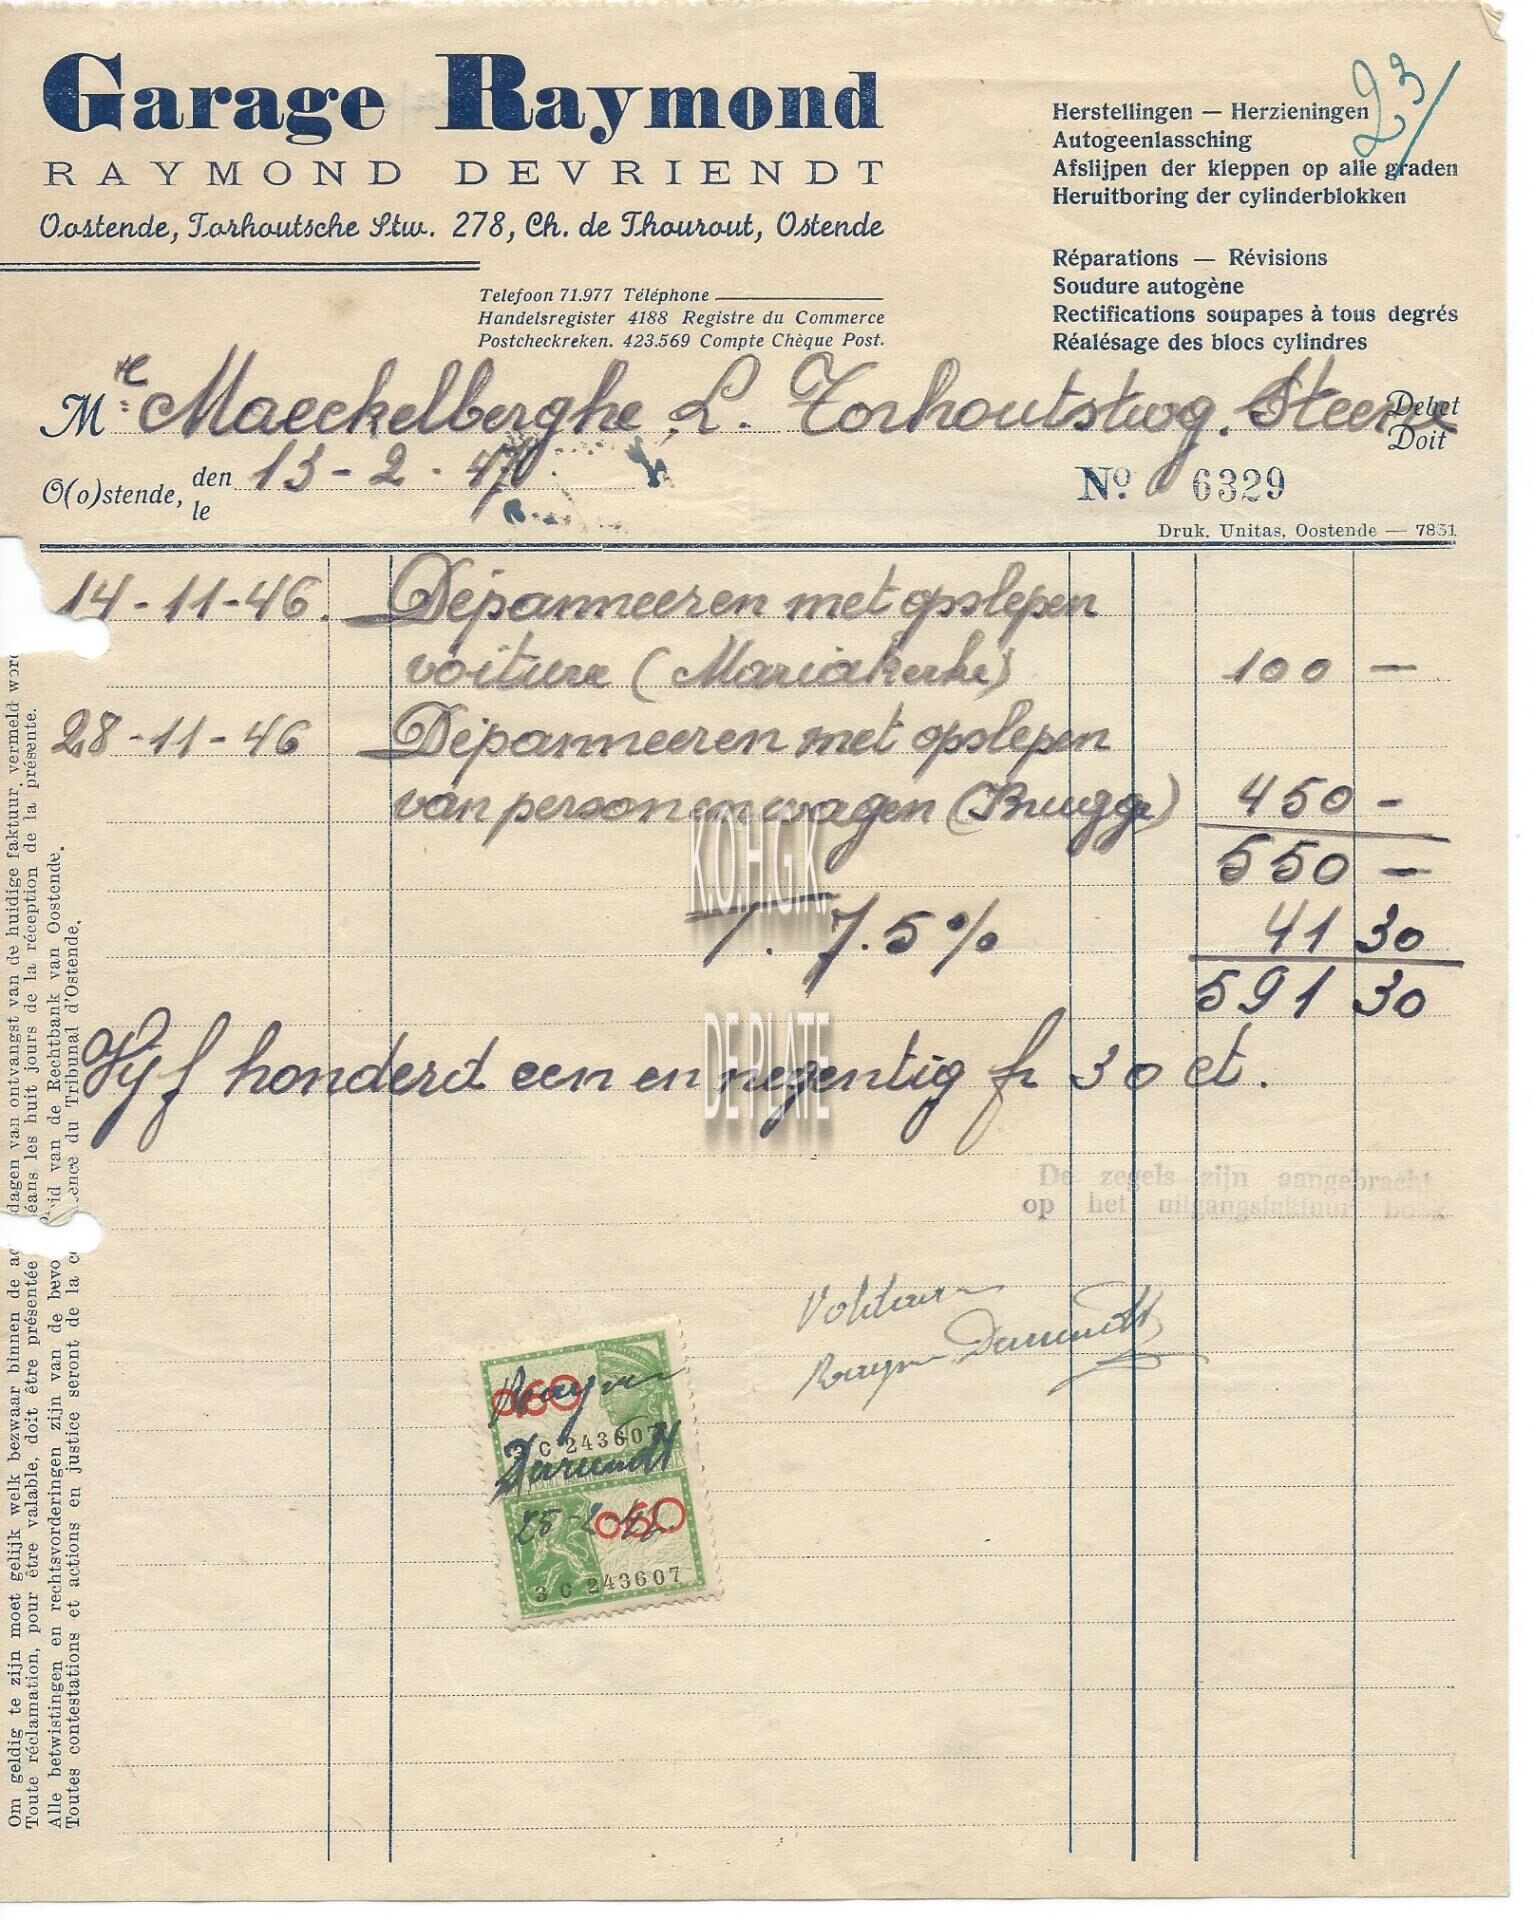 Garage Raymond
RAYMOND DEVRIENDT
Oostende, Torhoutsche Stw. 278, Ch. de Thourout, Ostende
Telefoon 71.977 Téléphone
Handelsregister 4188 Registre du Commerce
Postcheckreken. 423.569 Compte Chèque Post.
23/
Herstellingen — Herzieningen
Autogeenlassching
Afslijpen der kleppen op alle graden
Heruitboring der cylinderblokken
Réparations — Révisions
Soudure autogène
Rectifications soupapes à tous degrés
Réalésage des blocs cylindres
Mr Maeckelberghe L. Torhoutstwg. Steene Debet
Doit
O(o)stende, den 13-2-47
le
No 6329
Druk. Unitas, Oostende — 7831
14-11-46. Depanneeren met opslepen
voiture (Mariakerke) 100 —
28-11-46 Depanneeren met opslepen
van personenwagen (Brugge) 450 -
550 —
T. 7.5% 41 30
591 30
Vijf honderd een en negentig fr 30 ct.
K.O.H.G.K.
DE PLATE
De zegels zijn aangebracht
op het uitgangsfaktuur boek
Voldaan
Raymond Devriendt
0.60
Raymond
3 C 243607
Devriendt
25-2-47
0.60
3 C 243607
Om geldig te zijn moet gelijk welk bezwaar binnen de ac dagen van ontvangst van de huidige faktuur, vermeld word
Toute réclamation, pour être valable, doit être présentée éans les huit jours de la réception de la présente.
Alle betwistingen en rechtsvorderingen zijn van de bevo id van de Rechtbank van Oostende.
Toutes contestations et actions en justice seront de la co ence du Tribunal d'Ostende.